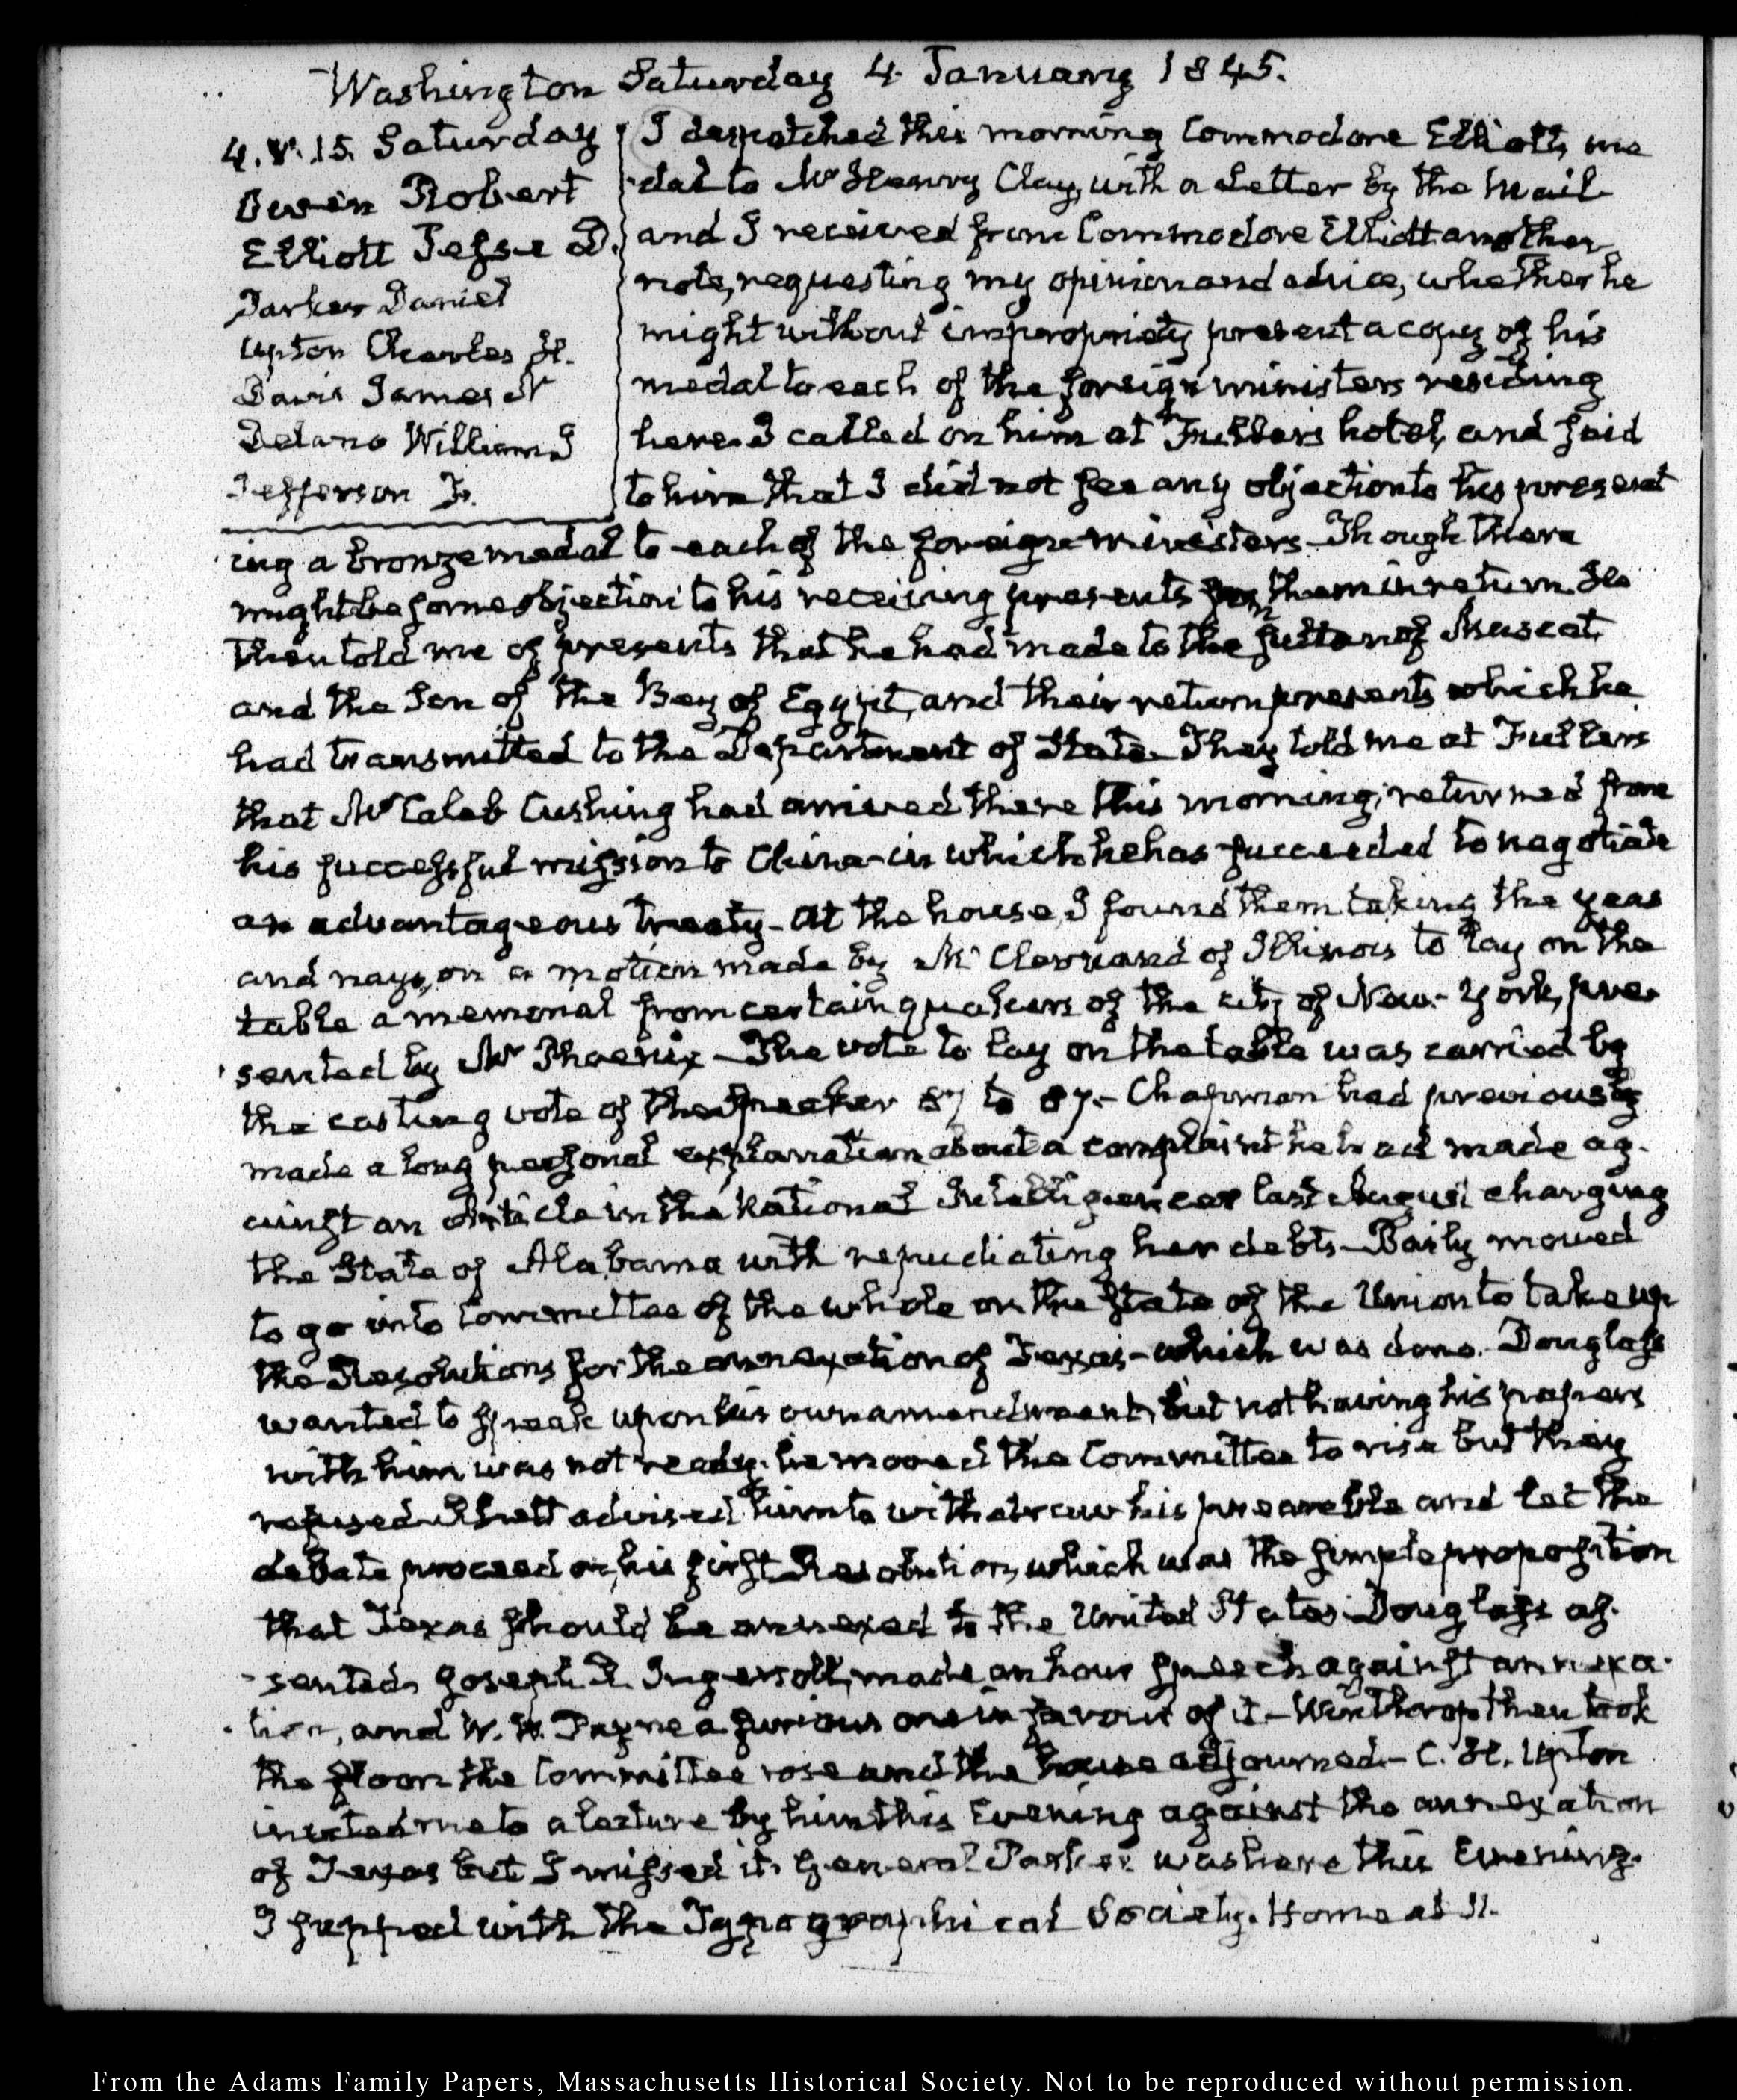 Washington Saturday 4. January 1845.
4. V. 15. Saturday
Owen Robert
Elliott Jesse D.
Parker Daniel
Upton Charles H.
Davis James N
Delano William J
Jefferson J.
I despatched this morning Commodore Elliott's me
dal to Mr Henry Clay, with a Letter by the Mail
and I received from Commodore Elliott another
note, requesting my opinion and advice, whether he
might without impropriety present a copy of his
medal to each of the foreign ministers residing
here. I called on him at Fuller's hotel, and said
to him that I did not see any objection to his present
ing a bronze medal to each of the foreign ministers. Though there
might be some objection to his receiving presents from them in return. He
then told me of presents that he had made to the Sultan of Muscat
and the Son of the Bey of Egypt, and their return presents which he
had transmitted to the Department of State. They told me at Fullers
that Mr Caleb Cushing had arrived there this morning; returned from
his successful mission to China in which he has succeeded to negotiate
an advantageous treaty- At the house, I found them taking the yeas
and nays, on a motion made by Mr Clernand of Illinois to lay on the
table a memorial from certain quakers of the city of New-York, pre
sented by Mr Phoenix- The vote to lay on the table was carried by
the casting vote of the Speaker 87 to 87.- Chapman had previously
made a long personal explanation about a complaint he had made ag-
ainst an Article in the National Intelligencer last August charging
the State of Alabama with repudiating her debts- Baily moved
to go into Committee of the whole on the State of the Union to take up
the Resolutions for the annexation of Texas- which was done. Douglass
wanted to speak upon his own amendment, but not having his papers
with him was not ready. he moved the Committee to rise but they
refused. Holt advised him to withdraw his preamble and let the
debate proceed on his first Resolution, which was the simple proposition
that Texas should be annexed to the United States. Douglass as-
sented. Joseph R. Ingersoll, made an hour speech against annexa-
tion, and W. W. Payne a furious one in favour of it- Winthrop then took
the floor the Committee rose and the house adjourned- C. H. Upton
invited me to a lecture by him this Evening against the annexation
of Texas but I missed it. General Parker was here this Evening.
I supped with the Typographical Society. Home at 11.
From the Adams Family Papers, Massachusetts Historical Society. Not to be reproduced without permission.